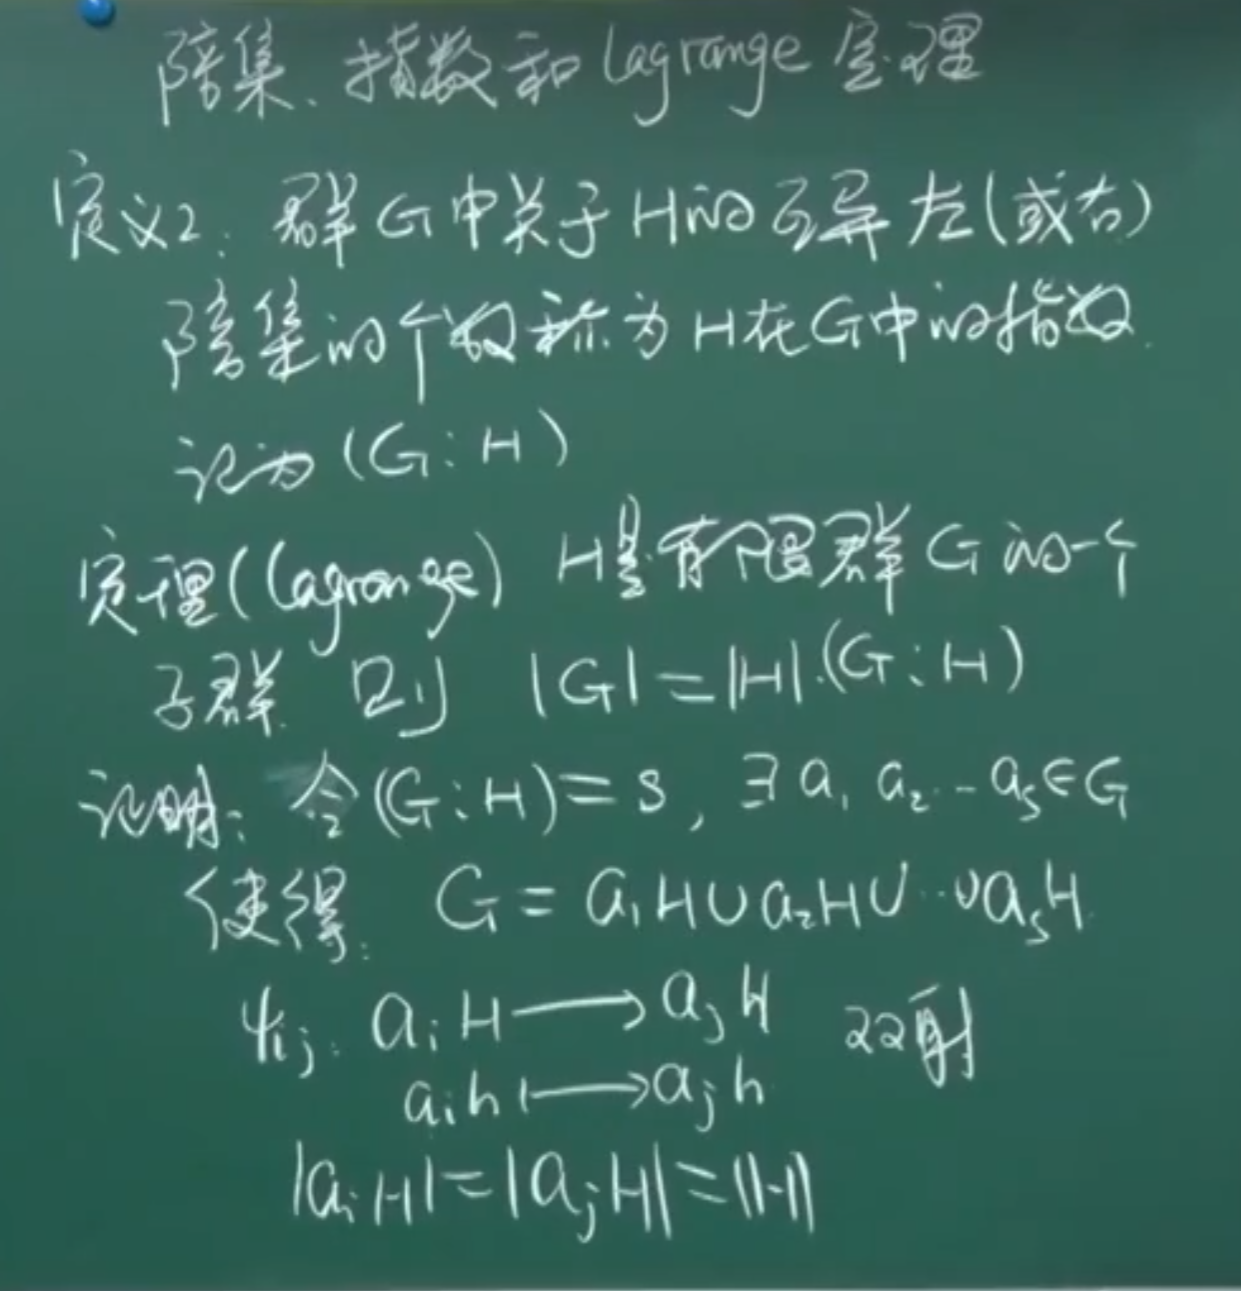 陪集、指数和Lagrange定理
定义2. 群G中关于H的互异左(或右)
陪集的个数称为H在G中的指数.
记为(G:H)
定理(Lagrange) H是有限群G的一个
子群. 则 |G|=|H|·(G:H)
证明: 令(G:H)=s, ∃a₁ a₂…aₛ∈G
使得: G=a₁H∪a₂H∪…∪aₛH
ψᵢⱼ: aᵢH⟶aⱼH 双射
aᵢh⟼aⱼh
|aᵢH|=|aⱼH|=|H|